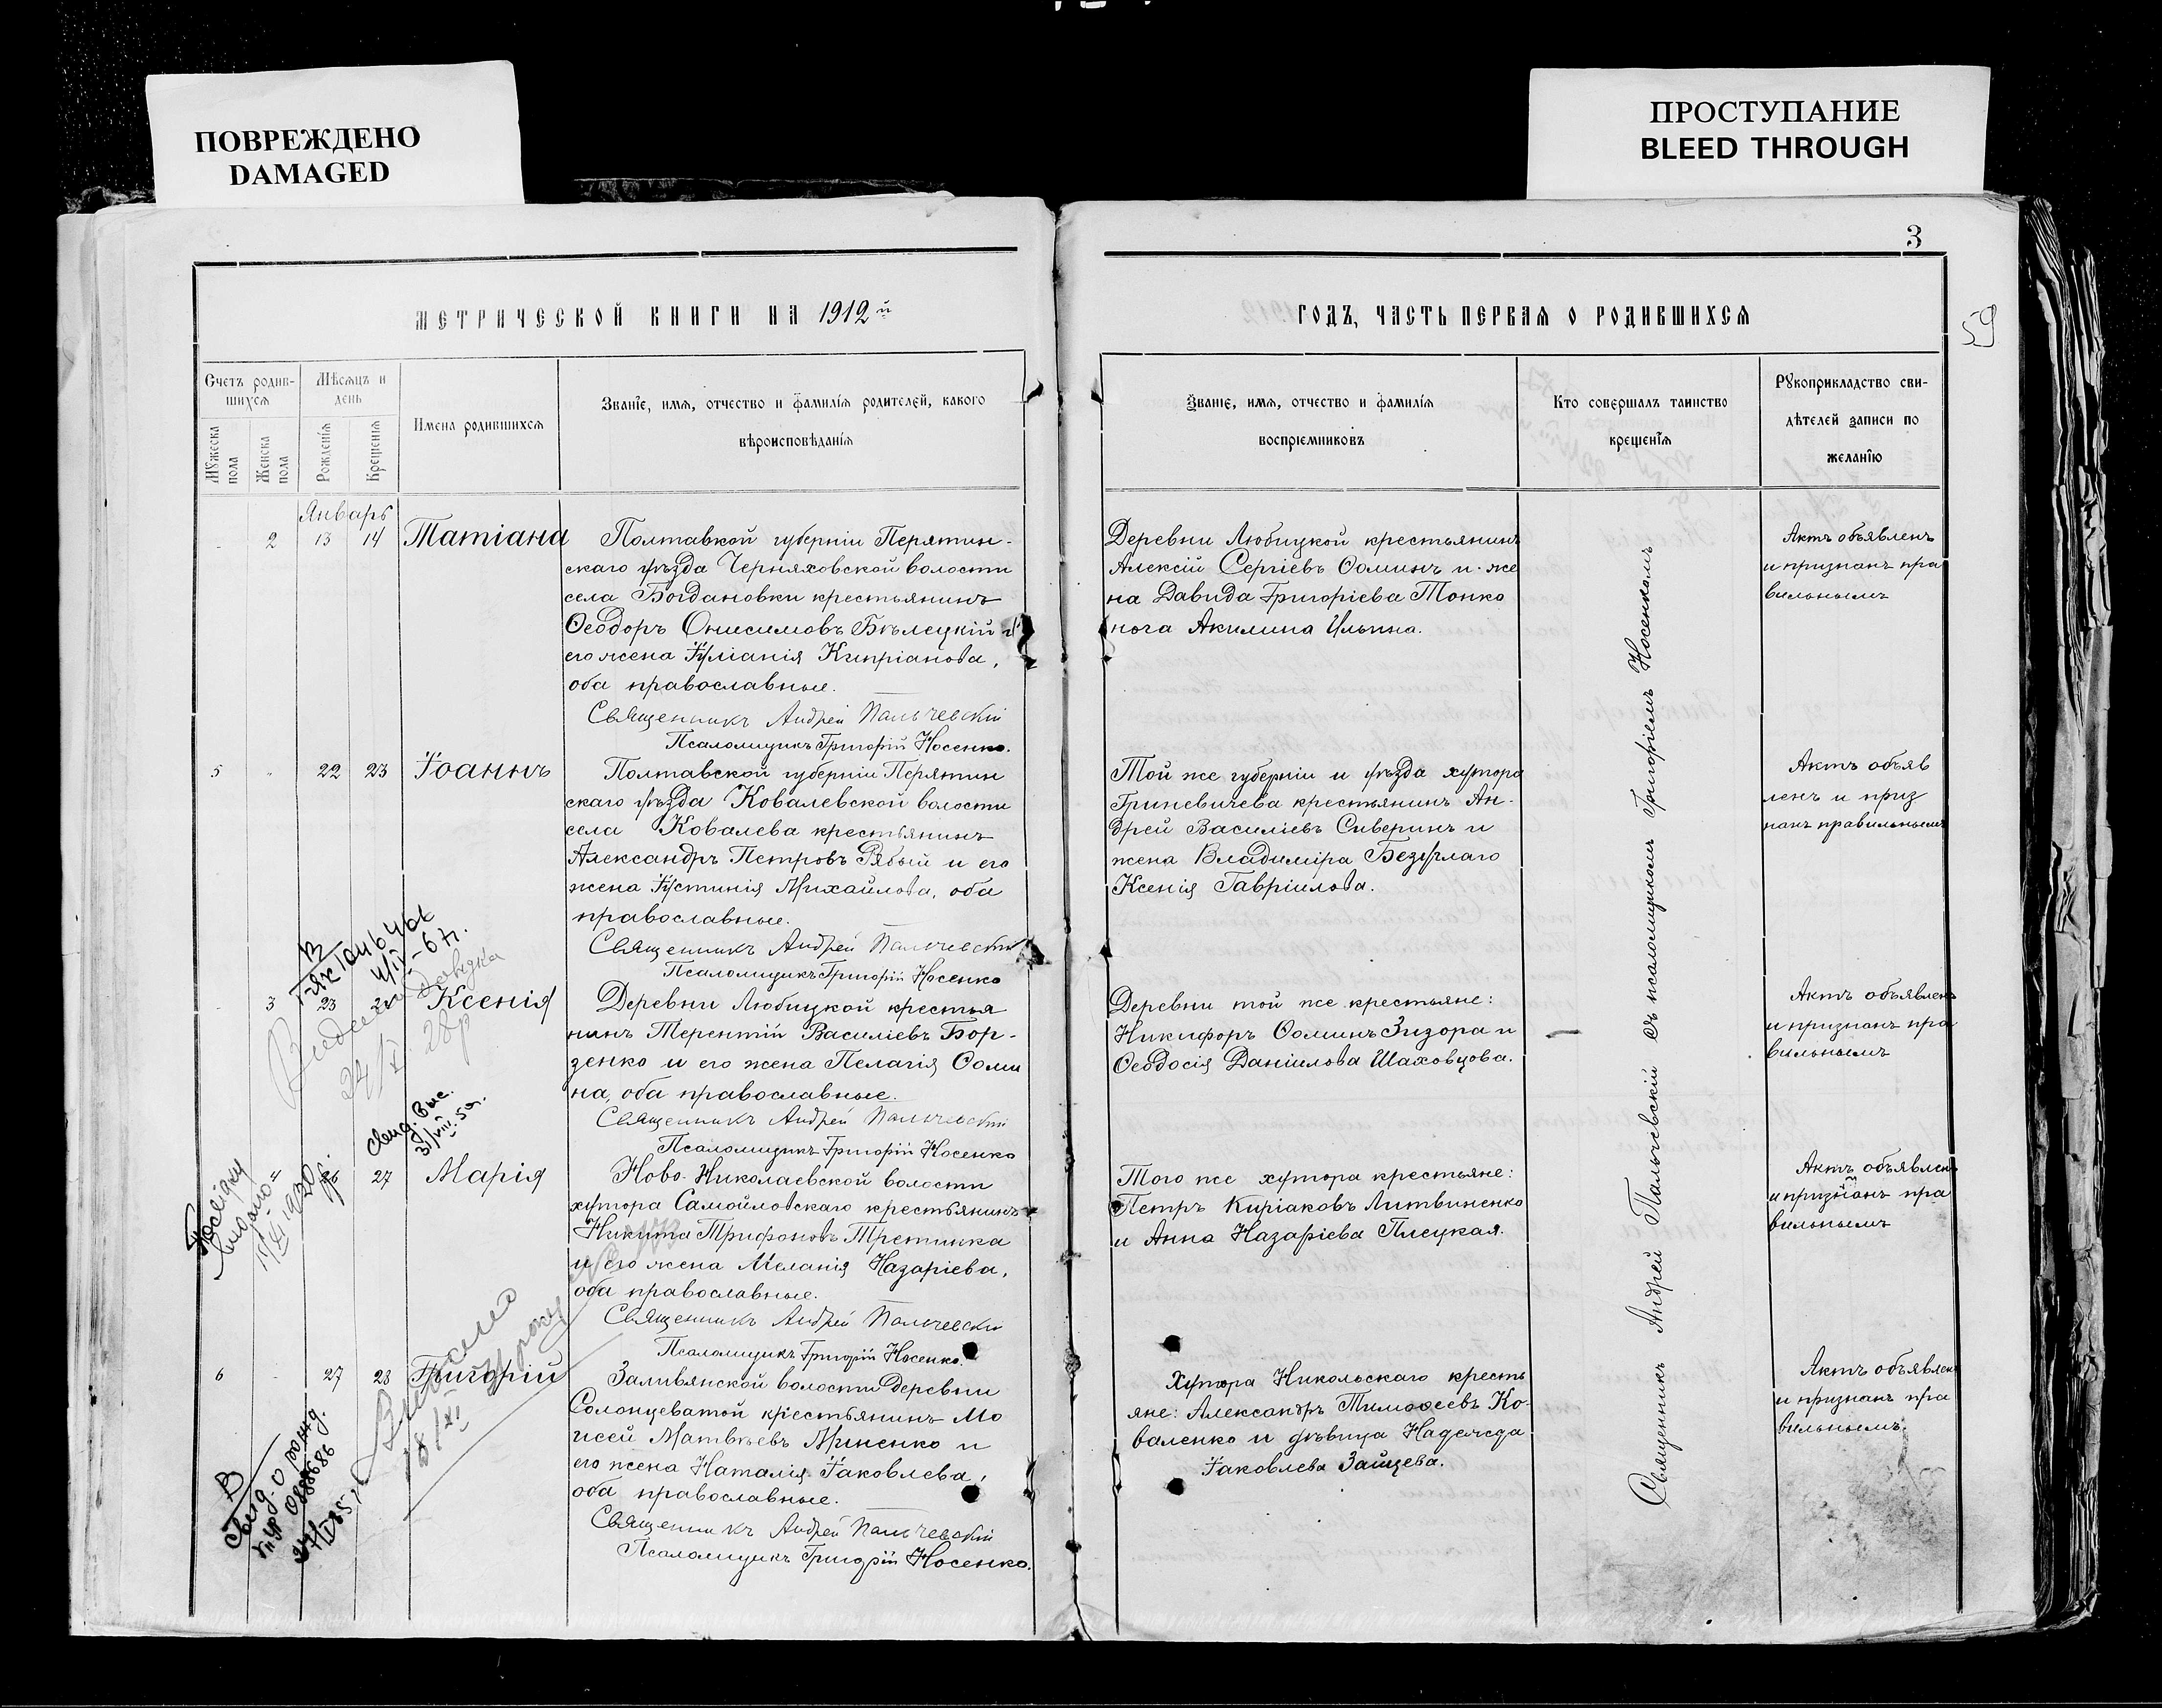 ПОВРЕЖДЕНО
DAMAGED
ПРОСТУПАНИЕ
BLEED THROUGH
3
59
МЕТРИЧЕСКОЙ КНИГИ НА 1912й
ГОДЪ, ЧАСТЬ ПЕРВАЯ О РОДИВШИХСЯ
Счетъ родив-
шихся
Мужеска пола
Женска пола
Мѣсяцъ и
день
Рожденія
Крещенія
Имена родившихся
Званіе, имя, отчество и фамилія родителей, какого
вѣроисповѣданія
Званіе, имя, отчество и фамилія
воспріемниковъ
Кто совершалъ таинство
крещенія
Рукоприкладство сви-
дѣтелей записи по
желанію
Январь
2 13 14 Татіана
Полтавкой губерніи Перятин-
скаго уѣзда Черняховской волости
села Богдановки крестьянинъ
Ѳеодоръ Онисимовъ Бѣлецкій и
его жена Іуліанія Кипріанова,
оба православные.
Священникъ Андрей Пальчевскій
Псаломщикъ Григорій Носенко.
Деревни Любицкой крестьянинъ
Алексій Сергіевъ Ѳоминъ и же
на Давида Григоріева Тонко
нога Акилина Ильина.
Актъ объявленъ
и признанъ пра
вильнымъ
5 22 23 Іоаннъ
Полтавской губерніи Перятин
скаго уѣзда Ковалевской волости
села Ковалева крестьянинъ
Александръ Петровъ Рябый и его
жена Іустинія Михайлова, оба
православные.
Священникъ Андрей Пальчевскій
Псаломщикъ Григорій Носенко
Той же губерніи и уѣзда хутора
Гриневичева крестьянинъ Ан-
дрей Василіевъ Сиверинъ и
жена Владиміра Безуглаго
Ксенія Гавріилова.
Актъ объяв
ленъ и приз
нанъ правильнымъ
3 23 Ксенія
Деревни Любицкой крестья
нинъ Терентій Василіевъ Бор-
зенко и его жена Пелагія Ѳоми
на, оба православные.
Священникъ Андрей Пальчевскій
Псаломщикъ Григорій Носенко
Деревни той же крестьяне:
Никифоръ Ѳоминъ Зизора и
Ѳеодосія Даніилова Шаховцова.
Актъ объявленъ
и признанъ пра
вильнымъ
Свид. выс.
31/VIII. 59.
27 Марія
Ново-Николаевской волости
хутора Самойловскаго крестьянинъ
Никита Трифоновъ Третинка
и его жена Меланія Назаріева,
оба православные.
Священникъ Андрей Пальчевскій
Псаломщикъ Григорій Носенко.
Того же хутора крестьяне:
Петръ Киріаковъ Литвиненко
и Анна Назаріева Плецкая.
Актъ объявленъ
и признанъ пра
вильнымъ
6 27 28 Григорій
Заливянской волости деревни
Солонцеватой крестьянинъ Мо
исей Матвѣевъ Мриненко и
его жена Наталія Іаковлева,
оба православные.
Священникъ Андрей Пальчевскій
Псаломщикъ Григорій Носенко.
Хутора Никольскаго кресть
яне: Александръ Тимоѳеевъ Ко-
валенко и дѣвица Надежда
Іаковлева Зайцева.
Актъ объявленъ
и признанъ пра
вильнымъ.
Священникъ Андрей Пальчевскій съ псаломщикомъ Григоріемъ Носенкомъ